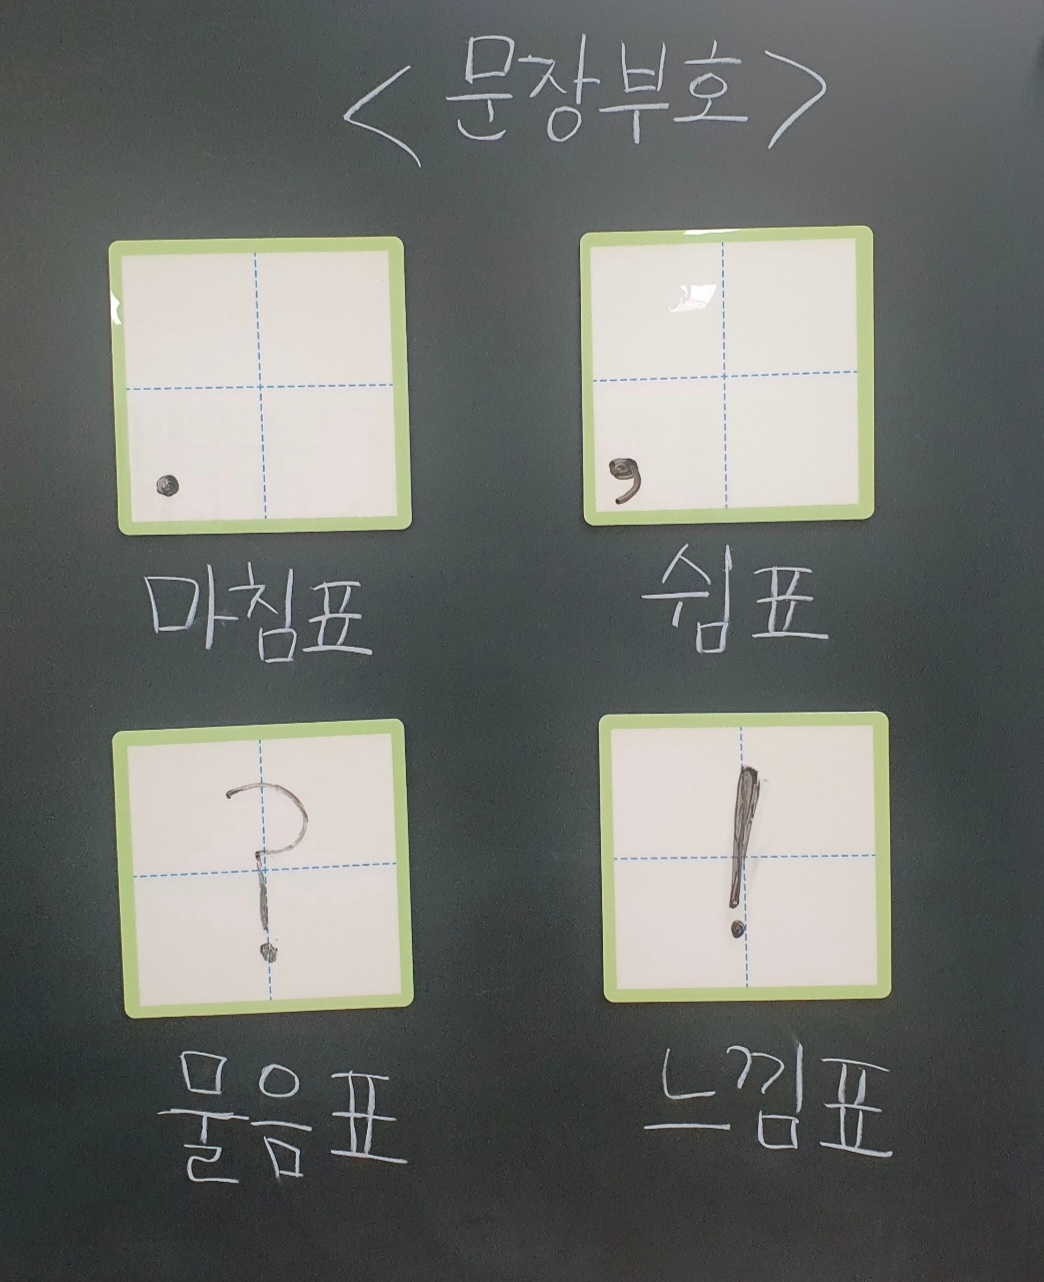 <문장부호>
. ,
마침표 쉼표
? !
물음표 느낌표